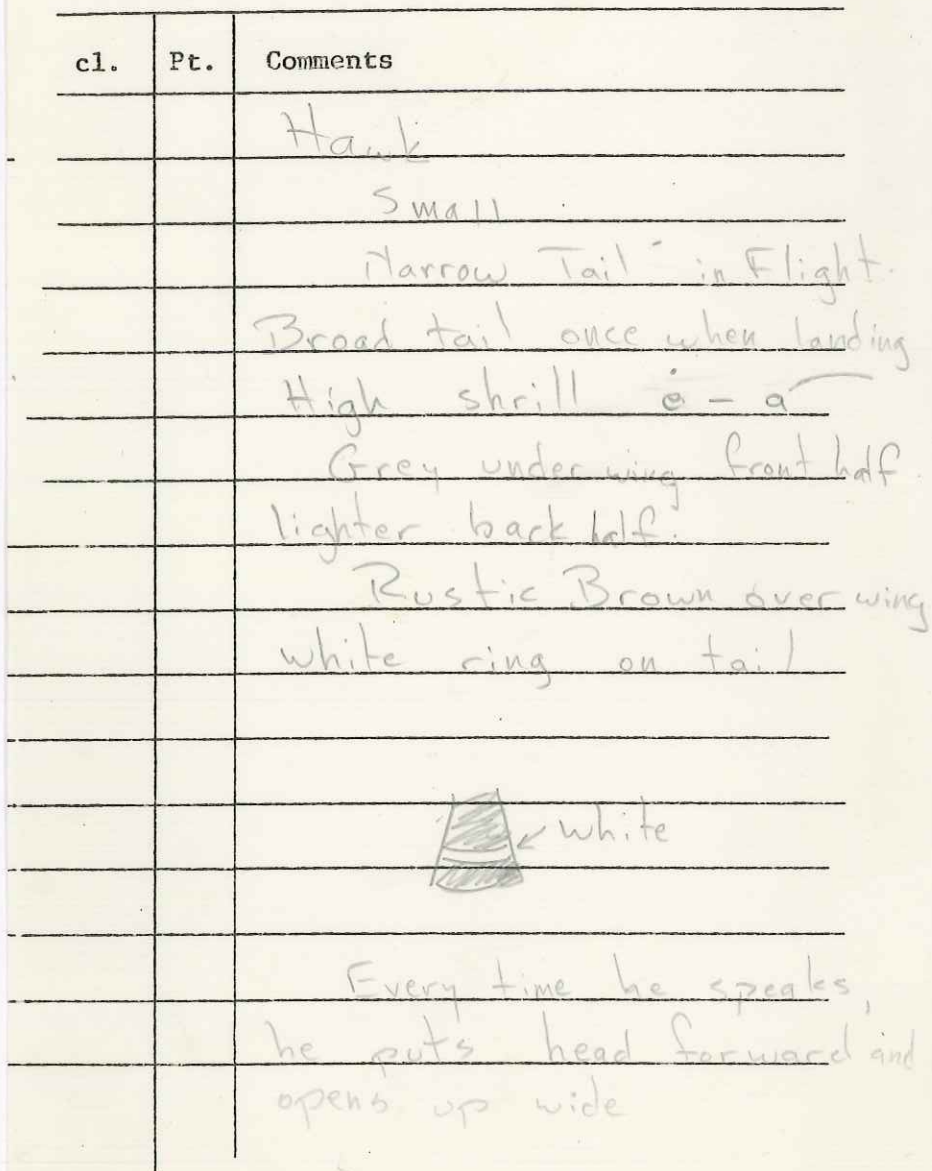 cl. Pt. Comments
Hawk
Small
Narrow Tail in Flight.
Broad tail once when landing
High shrill ė - a
Grey under wing front half
lighter back half.
Rustic Brown over wing
white ring on tail
white
Every time he speaks,
he puts head forward and
opens up wide